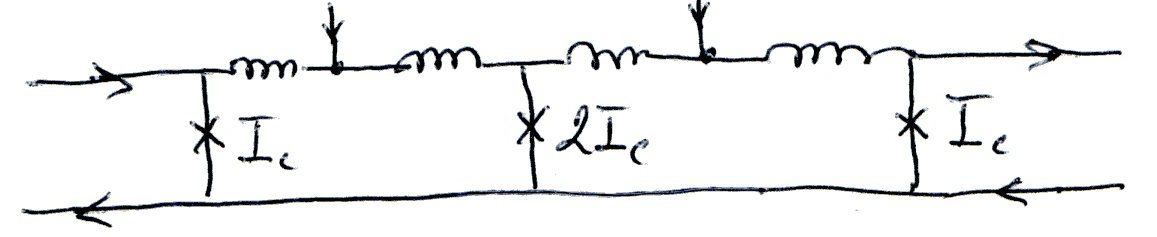 I_c 2I_c I_c